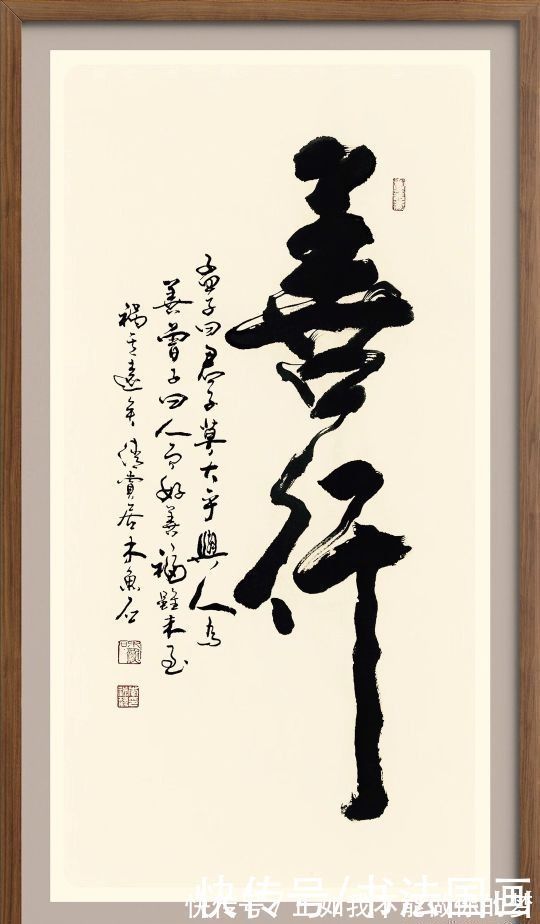 善行
孟子曰君子莫大乎與人為
善曾子曰人而好善福雖未至
禍其遠矣 倩賞居木魚石
快传号/书法国画